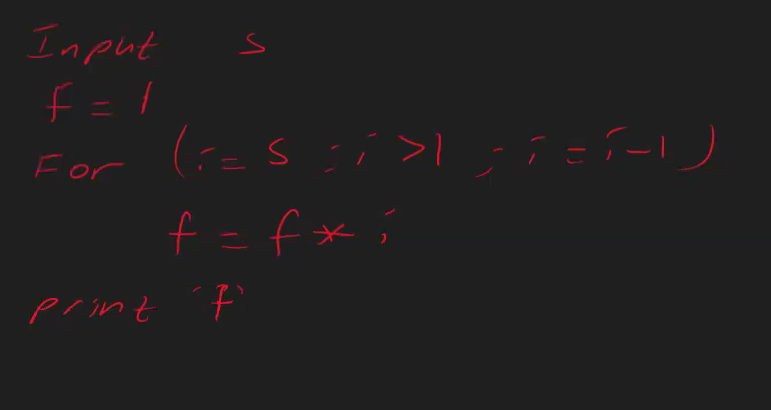 Input s
f = 1
For (i = s ; i > 1 ; i = i - 1)
f = f * i
print 'f'